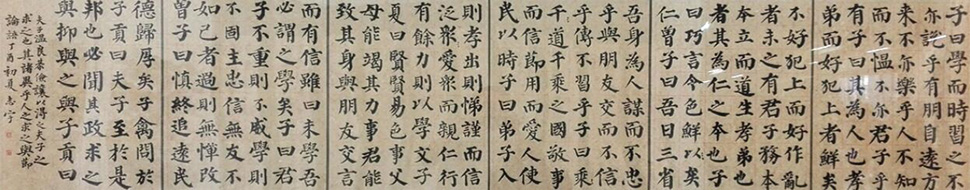 子曰學而時習之不
亦說乎有朋自遠方
來不亦樂乎人不知
而不慍不亦君子乎
有子曰其為人也孝
弟而好犯上者鮮矣
不好犯上而好作亂
者未之有君子務本
本立而道生孝弟也
者其為仁之本也子
曰巧言令色鮮矣
仁曾子曰吾日三省
吾身為人謀而不忠
乎與朋友交而不信
乎傳不習乎子曰
道千乘之國敬事
而信節用而愛人使
民以時子曰弟子入
則孝出則悌謹而信
泛愛眾而親仁行
有餘力則以學文子
夏曰賢賢易色事父
母能竭其力事君能
致其身與朋友交言
而有信雖曰未學吾
必謂之學矣子曰君
子不重則不威學則
不固主忠信無友不
如己者過則無憚改
曾子曰慎終追遠民
德歸厚矣子禽問於
子貢曰夫子至於是
邦也必聞其政求之
與抑與之與子貢曰
夫子溫良恭儉讓以得之夫子之
求之也其諸異乎人之求之與節
論語丁酉初夏志宇